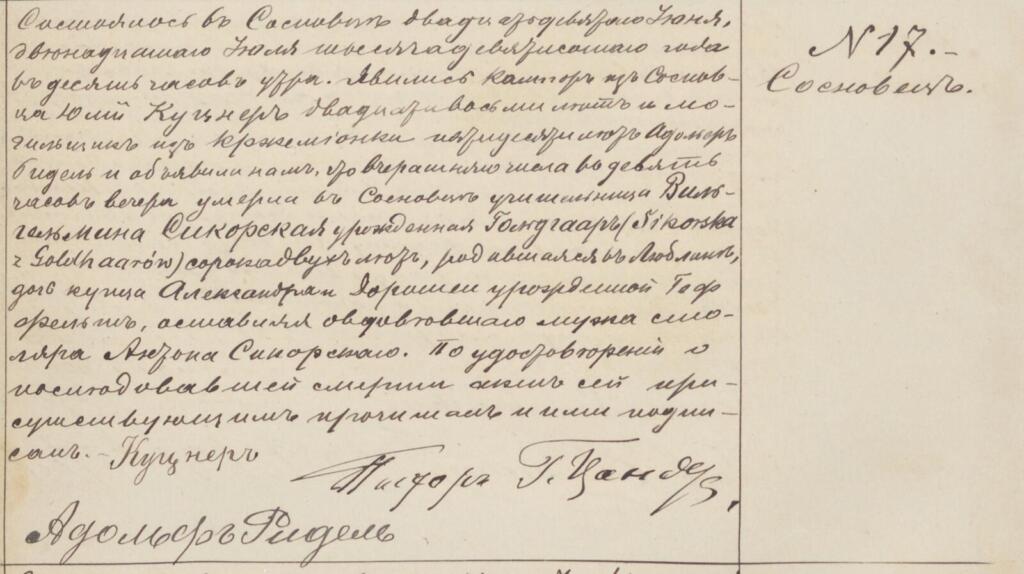 Состоялось въ Сосновцѣ двадцать девятаго Іюня,
двѣнадцатаго Іюля тысяча девятисотаго года
въ десять часовъ утра. Явились канторъ изъ Соснов-
ца Юлій Кушнеръ двадцати восьми лѣтъ и мо-
гильщикъ изъ пятидесяти лѣтъ Адольфъ
Ридель и объявили намъ, что вчерашняго числа въ девять
часовъ вечера умерла въ Сосновцѣ учительница Виль-
гельмина Сикорская урожденная Гольдгааръ (Sikorska
z Goldhaarów) сорока двухъ лѣтъ, родившаяся въ Люблинѣ,
дочь купца Александра и Доротеи урожденной Гоф
фельтъ, оставляя овдовѣвшаго мужа сто-
ляра Антона Сикорскаго. По удостовѣреніи о
послѣдовавшей смерти актъ сей при-
сутствующимъ прочитанъ и ими подпи-
санъ. - Кушнеръ
Пасторъ Г. Цандеръ,
Адольфъ Ридель
N 17.-
Сосновецъ.